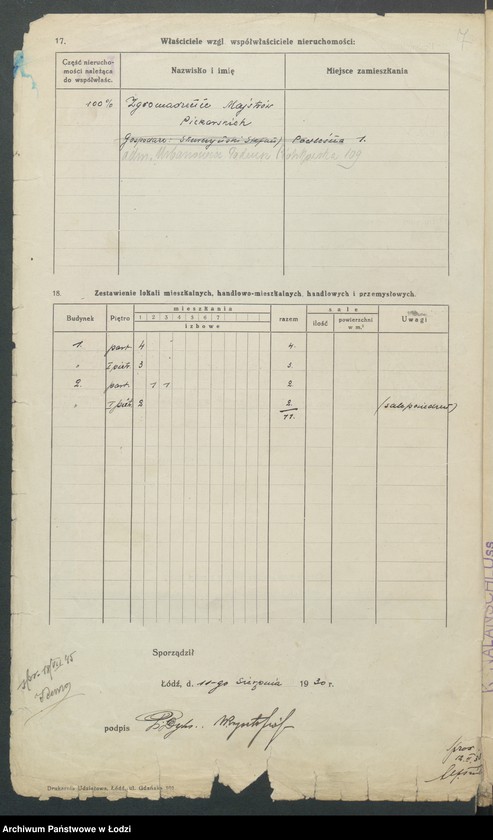 17. Właściciele wzgl. współwłaściciele nieruchomości:
7
Część nierucho-
mości należąca
do współwłaśc.
Nazwisko i imię
Miejsce zamieszkania
100% Zgromadzenie Majstrów
Piekarskich
Gospodarz: Stefan) 1.
adm. Urbanowicz Piotrkowska 109
18. Zestawienie lokali mieszkalnych, handlowo-mieszkalnych, handlowych i przemysłowych.
Budynek Piętro mieszkania razem sale Uwagi
1 2 3 4 5 6 7 ilość powierzchni w m.²
izbowe
1. part. 4 4.
" I pięt. 3 3.
2. part. 1 1 2.
" I pięt. 2 2. (sala posiedzeń)
11.
Sporządził
Łódź, d. 11-go Sierpnia 1930 r.
podpis
Drukarnia Udziałowa, Łódź, ul. Gdańska
Archiwum Państwowe w Łodzi